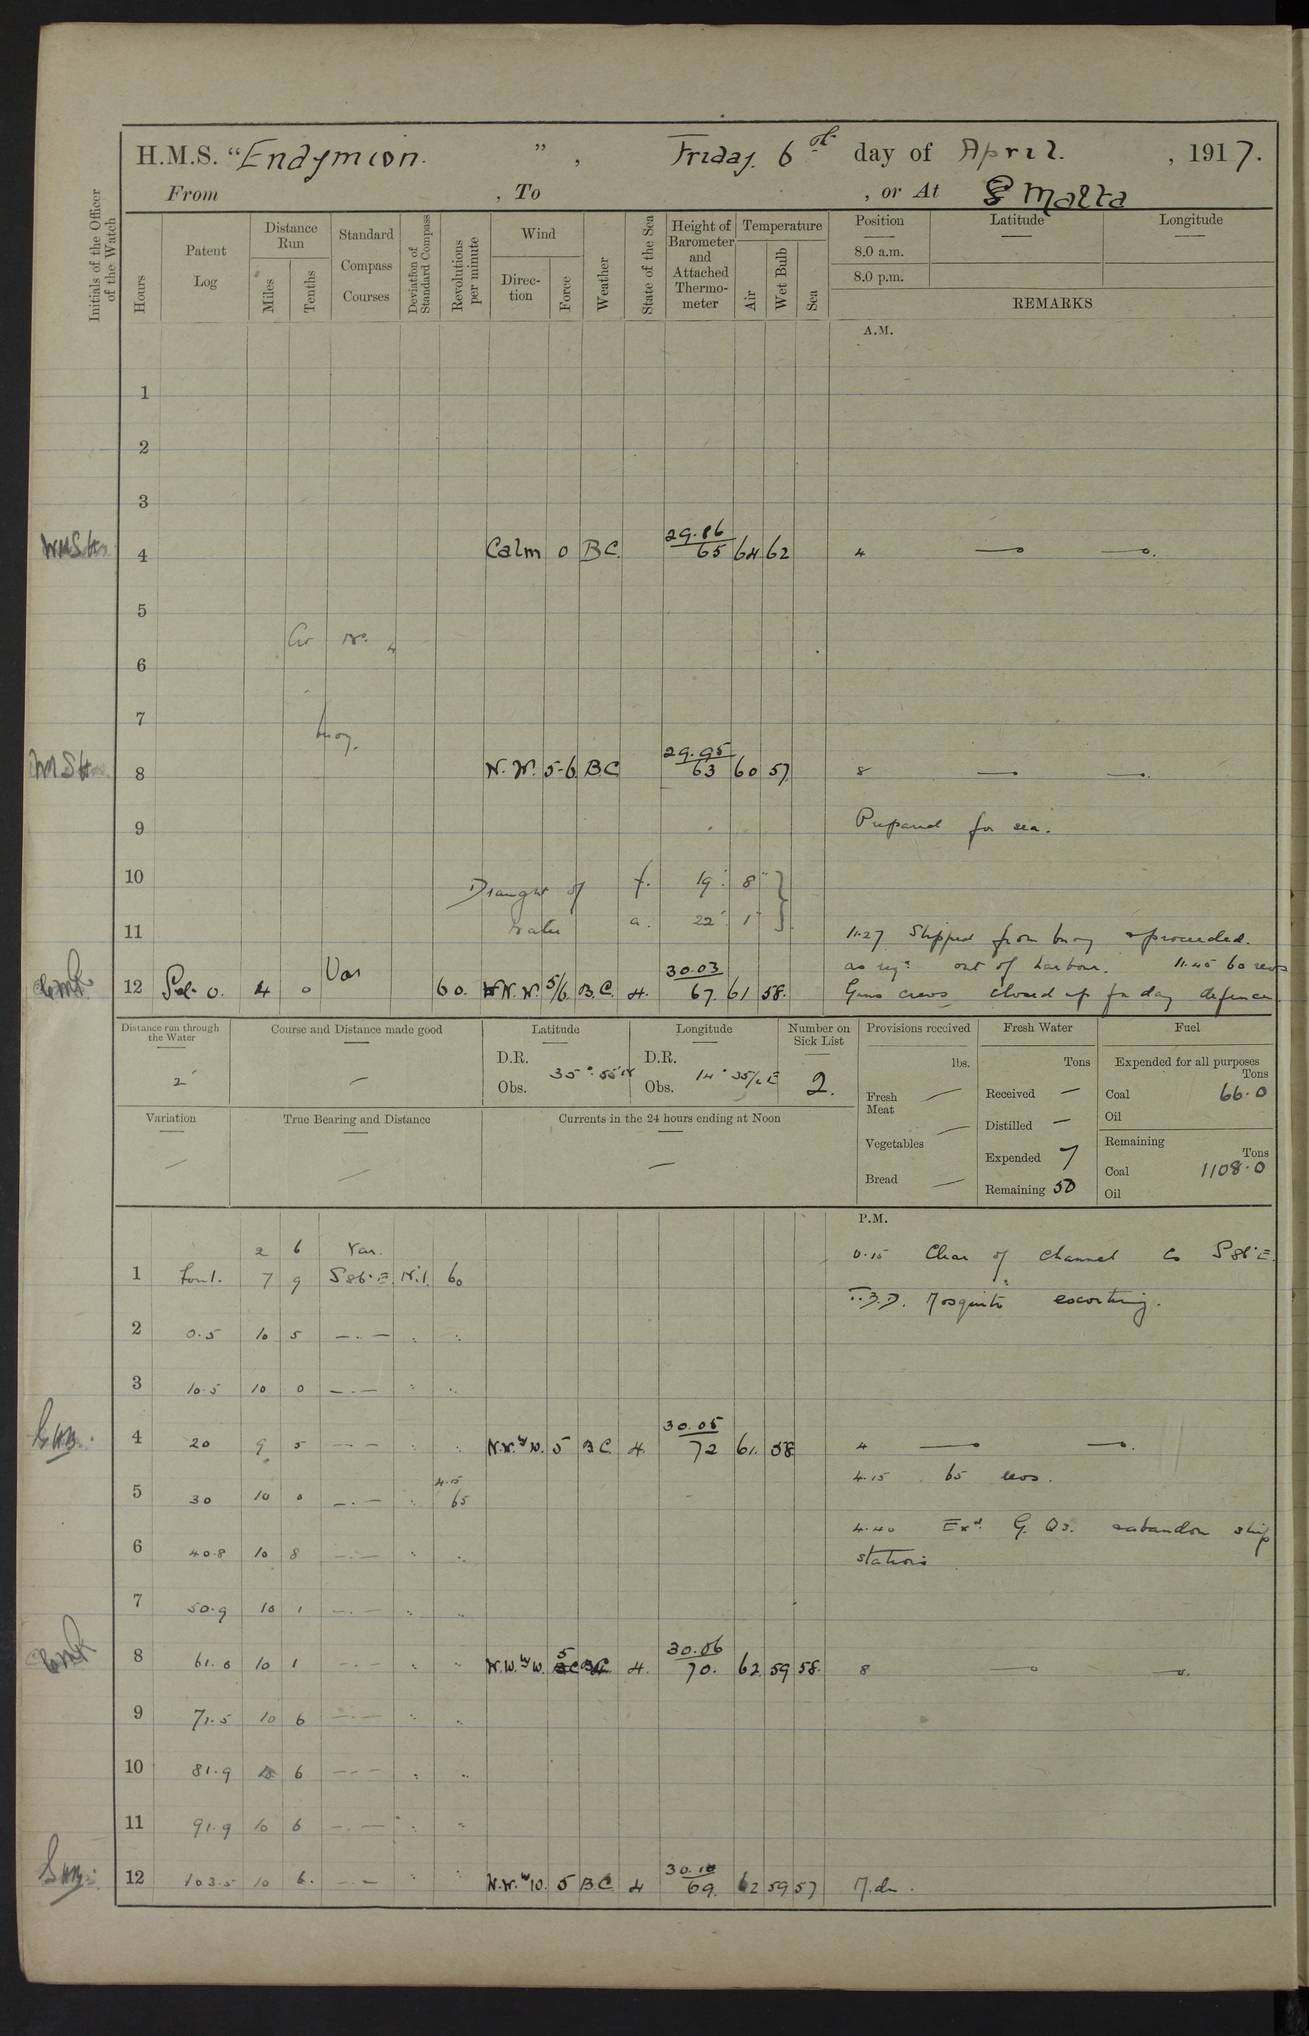 H.M.S. “Endymion. ” , Friday. 6th day of April. , 1917.
From , To , or At Malta
Initials of the Officer of the Watch
Hours
Patent Log
Distance Run
Miles
Tenths
Standard Compass Courses
Deviation of Standard Compass
Revolutions per minute
Wind
Direc-tion
Force
Weather
State of the Sea
Height of Barometer and Attached Thermo-meter
Temperature
Air
Wet Bulb
Sea
Position Latitude Longitude
8.0 a.m.
8.0 p.m.
REMARKS
A.M.
1
2
3
4 Calm 0 B C. 29.86 65 64 62 4
5
At No. 4
6
7
buoy.
8 N.W. 5-6 B C 29.95 63 60 57 8
9 Prepared for sea.
10 Draught of f. 19' 8"
water a. 22' 1"
11 11.27 Slipped from buoy & proceeded.
as reqd out of harbour. 11.45 60 revs
12 Set 0. 4 0 Var 60. N.W. 5/6 B.C. 4. 30.03 67. 61 58. Guns crews closed up for day defence
Distance run through the Water
2
Course and Distance made good
Latitude
D.R.
Obs. 35° 55' N
Longitude
D.R.
Obs. 14° 35½ E
Number on Sick List
2.
Provisions received
lbs.
Fresh Meat
Vegetables
Bread
Fresh Water
Tons
Received
Distilled
Expended 7
Remaining 50
Fuel
Expended for all purposes
Tons
Coal 66.0
Oil
Remaining
Tons
Coal 1108.0
Oil
Variation
True Bearing and Distance
Currents in the 24 hours ending at Noon
P.M.
2 6 Var. 0.15 Clear of channel Co S 86° E.
1 7 9 S 86° E. Nil. 60
T.B.D. Mosquito escorting.
2 0.5 10 5
3 10.5 10 0
4 20 9 5 N.W. by W. 5 B C. 4 30.05 72 61. 58 4
4.15 65 revs.
5 30 10 0 4.15 65
4.40 Exd G. Qs. & abandon ship
6 40.8 10 8 stations
7 50.9 10 1
8 61.0 10 1 N.W. by W. 5 B C 4. 30.06 70. 62 59 58. 8
9 71.5 10 6
10 81.9 6
11 91.9 10 6
12 103.5 10 6. N.W. by W. 5 B C 4 30.10 69. 62 59 57 M.dn.